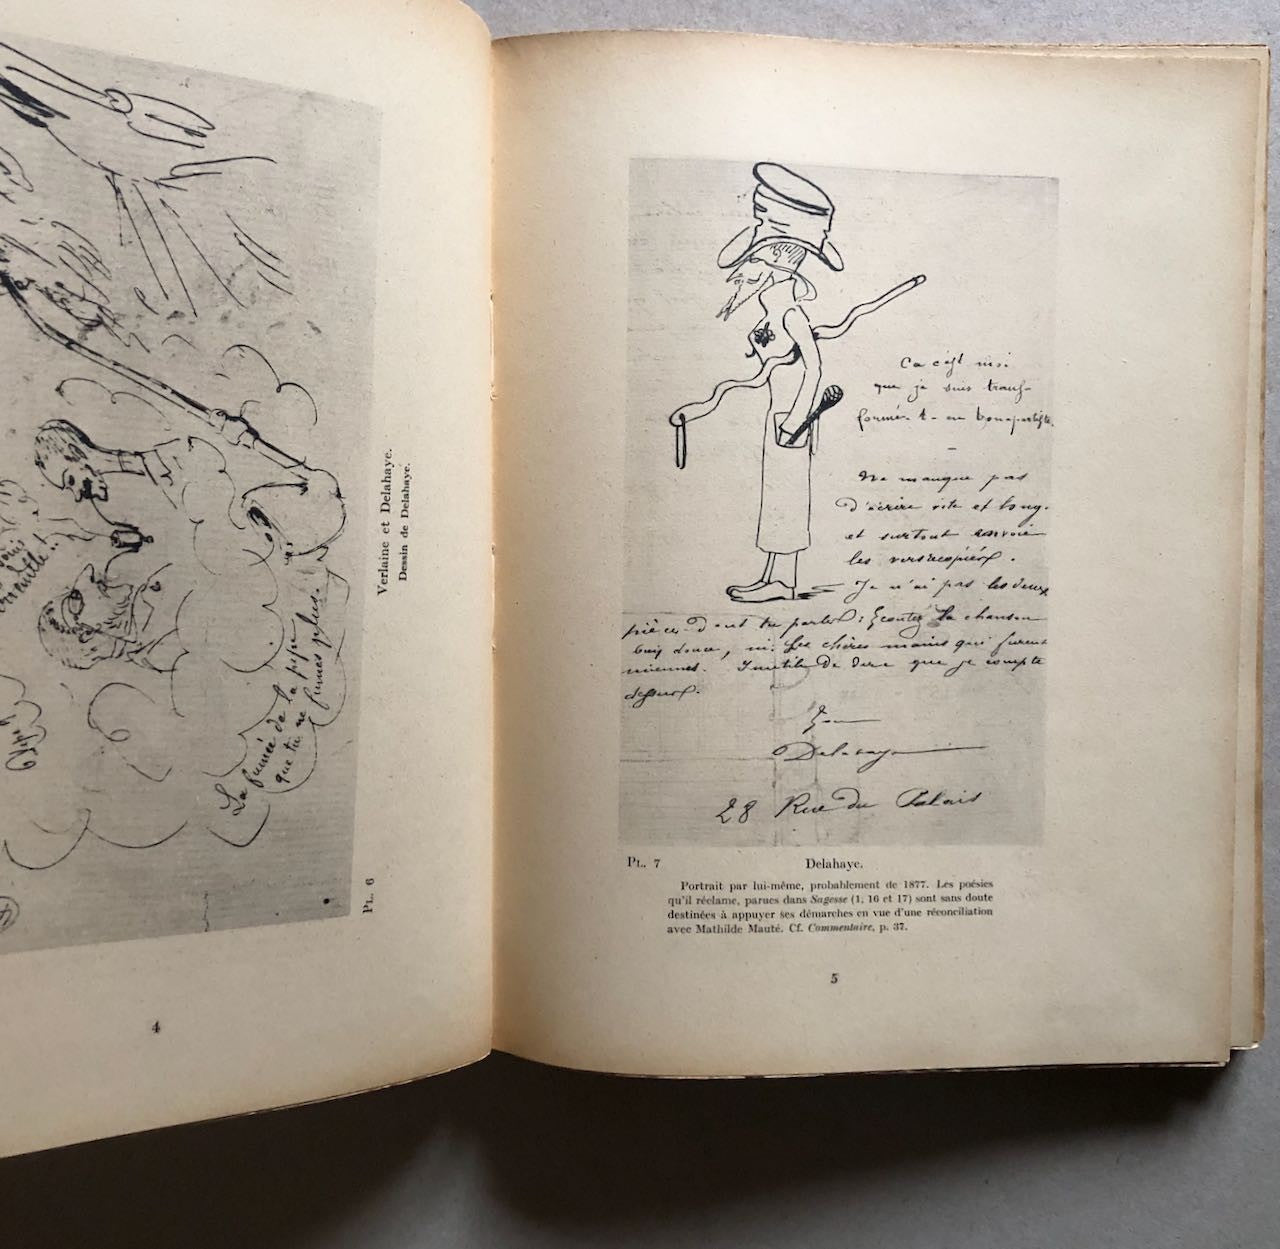 La fumée de la pipe
que tu ne fumes plus.
Verlaine et Delahaye.
Dessin de Delahaye.
PL. 6
4
Ça c'est moi
que je suis trans-
formé-t-en bonapartiste.
Ne manque pas
d'écrire vite et long.
et surtout envoie
les vers recopiés.
Je n'ai pas les deux
pièces dont tu parles : Écoutez la chanson
bien douce, ni Les chères mains qui furent
miennes. Inutile de dire que je compte
dessus.
Ton
Delahaye
28 Rue du Palais
PL. 7
Delahaye.
Portrait par lui-même, probablement de 1877. Les poésies
qu'il réclame, parues dans Sagesse (1, 16 et 17) sont sans doute
destinées à appuyer ses démarches en vue d'une réconciliation
avec Mathilde Mauté. Cf. Commentaire, p. 37.
5